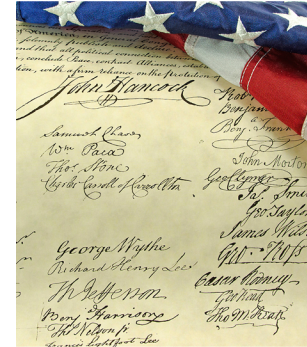 of America, in General
solemnly publish
and that all political connection between
conclude Peace, contract Alliances, establish
tion, with a firm reliance on the protection of
John Hancock
Samuel Chase
Wm Paca
Thos Stone
Charles Carroll of Carrollton
George Wythe
Richard Henry Lee
Th Jefferson
Benj Harrison
Thos Nelson jr
Francis Lightfoot Lee
Robt
Benjamin
Benj. Frank
John Morton
Geo Clymer
Jas. Smi
Geo. Tayl
James Wils
Geo. Ross
Caesar Rodney
Geo Read
Tho M:Kean